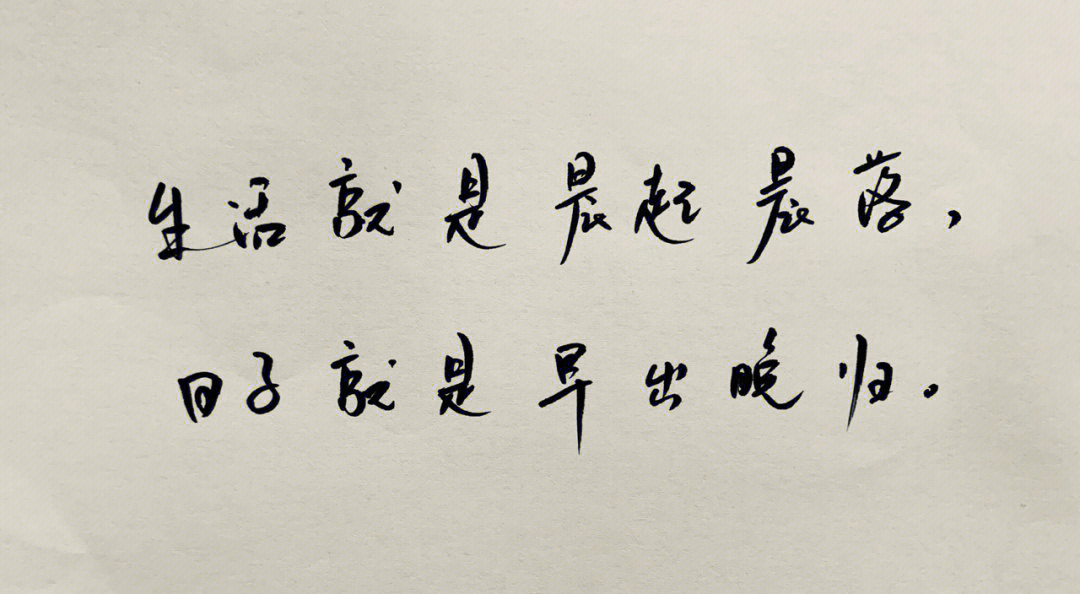 生活就是晨起晨落，
日子就是早出晚归。